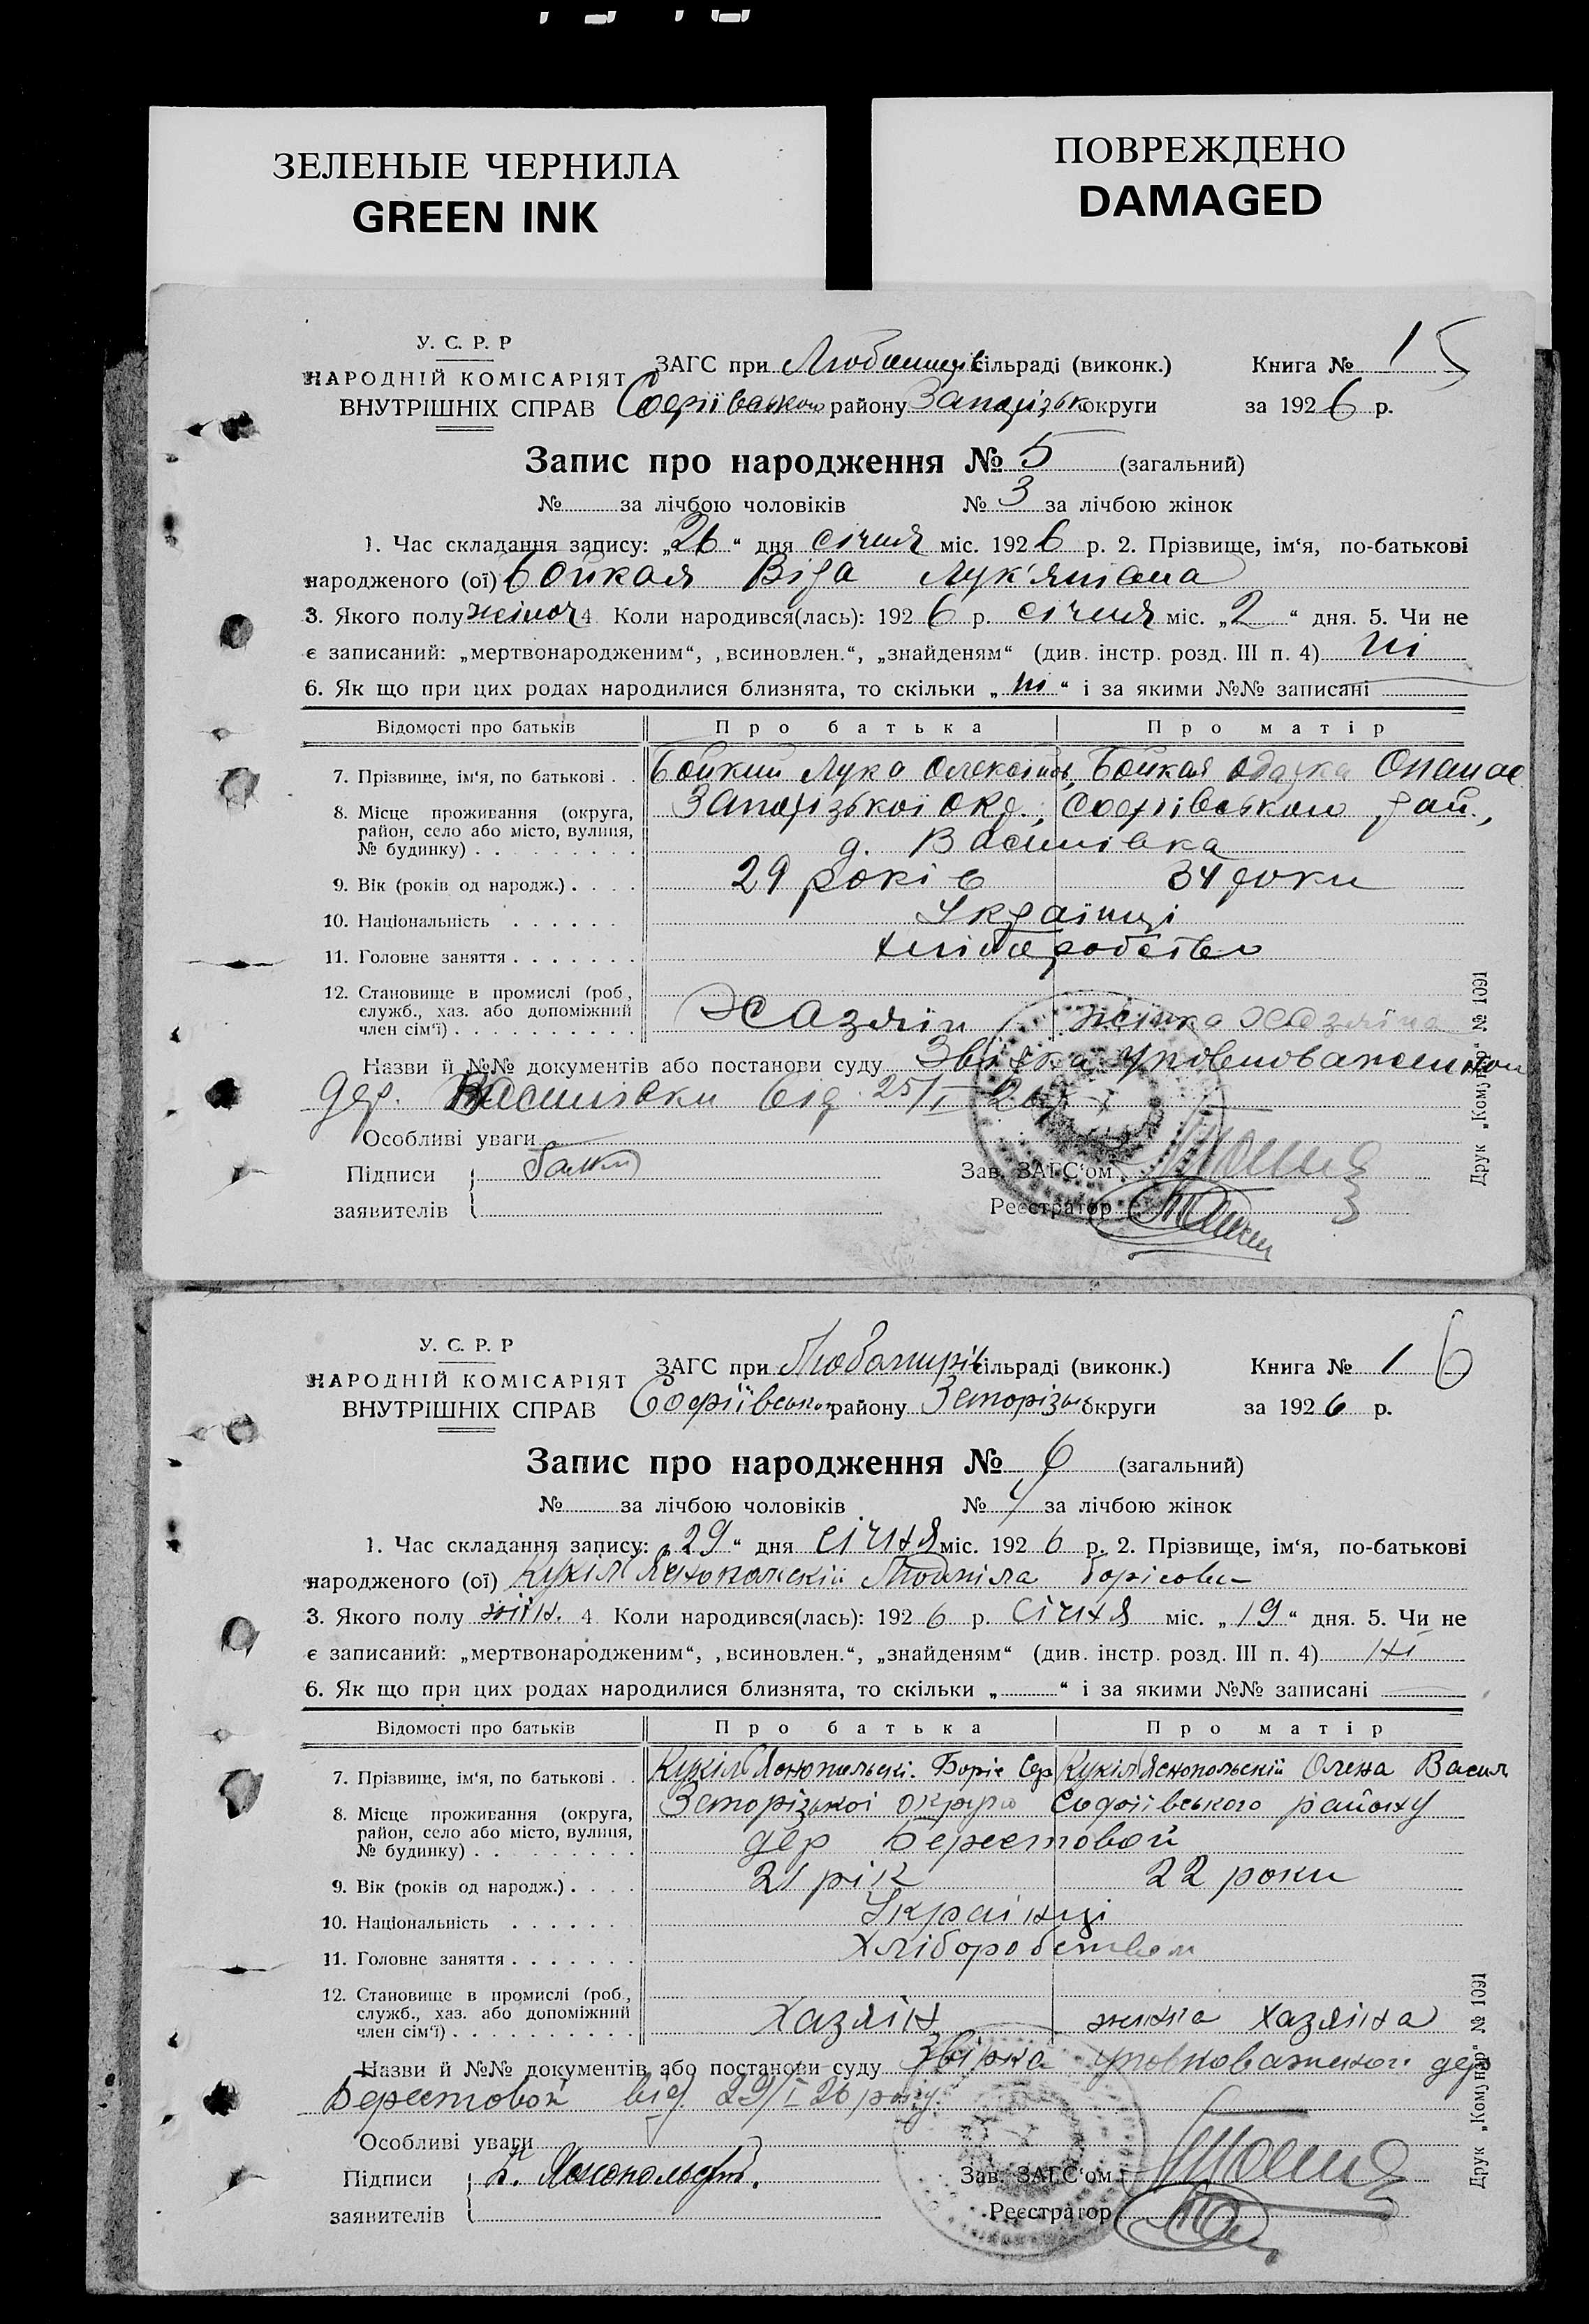 ЗЕЛЕНЫЕ ЧЕРНИЛА
GREEN INK
ПОВРЕЖДЕНО
DAMAGED
У. С. Р. Р
НАРОДНІЙ КОМІСАРІЯТ
ВНУТРІШНІХ СПРАВ
ЗАГС при сільраді (виконк.)
Софіївського району Запорізьк округи
Книга № 1 5
за 1926 р.
Запис про народження № 5 (загальний)
№ за лічбою чоловіків № 3 за лічбою жінок
1. Час складання запису: „26“ дня січня міс. 1926 р. 2. Прізвище, ім‘я, по-батькові
народженого (ої) Бойкая Віра Лук'янівна
3. Якого полу жіноч 4 Коли народився(лась): 1926 р. січня міс. „2“ дня. 5. Чи не
є записаний: „мертвонародженим“, „всиновлен.“, „знайденям“ (див. інстр. розд. III п. 4) ні
6. Як що при цих родах народилися близнята, то скільки „ні“ і за якими №№ записані
Відомості про батьків Про батька Про матір
7. Прізвище, ім‘я, по батькові . . Бойкий Лука Олексійов, Бойкая Опанас
8. Місце проживання (округа, район, село або місто, вулиця, № будинку) Запорізької окр., Софіївського рай.,
д. Василівка
9. Вік (років од народж.) . . . . 29 років 34 роки
10. Національність . . . . . . Українці
11. Головне заняття . . . . . . . хліборобство
12. Становище в промислі (роб., служб., хаз. або допоміжний член сім‘ї) Хазяїн жінка хазяїна
Назви й №№ документів або постанови суду Звістка уповноваженного
дер. Василівки від 25/I 26 р.
Особливі уваги
Підписи заявителів
Зав. ЗАГС‘ом
Реєстратор
Друк „Комунар“ № 1091
У. С. Р. Р
НАРОДНІЙ КОМІСАРІЯТ
ВНУТРІШНІХ СПРАВ
ЗАГС при сільраді (виконк.)
Софіївськог району Запорізьк округи
Книга № 1 6
за 1926 р.
Запис про народження № 6 (загальний)
№ за лічбою чоловіків № 4 за лічбою жінок
1. Час складання запису: „29“ дня січня міс. 1926 р. 2. Прізвище, ім‘я, по-батькові
народженого (ої) Кукіль Яснопольскій Людміла Борісовн
3. Якого полу жін. 4 Коли народився(лась): 1926 р. Січня міс. „19“ дня. 5. Чи не
є записаний: „мертвонародженим“, „всиновлен.“, „знайденям“ (див. інстр. розд. III п. 4) ні
6. Як що при цих родах народилися близнята, то скільки „ “ і за якими №№ записані
Відомості про батьків Про батька Про матір
7. Прізвище, ім‘я, по батькові . . Кукіль Яснопольскі. Боріс Сер Кукіль Яснопольскій Олена Васил
8. Місце проживання (округа, район, село або місто, вулиця, № будинку) Запорізької округи Софіївського району
дер Берестовой
9. Вік (років од народж.) . . . . 21 рік 22 роки
10. Національність . . . . . . Українці
11. Головне заняття . . . . . . . Хліборобством
12. Становище в промислі (роб., служб., хаз. або допоміжний член сім‘ї) Хазяїн жинка Хазяїна
Назви й №№ документів або постанови суду уповноваженого дер
Берестовой від 29/I 26 року.
Особливі уваги
Підписи заявителів
Зав. ЗАГС‘ом
Реєстратор
Друк „Комунар“ № 1091